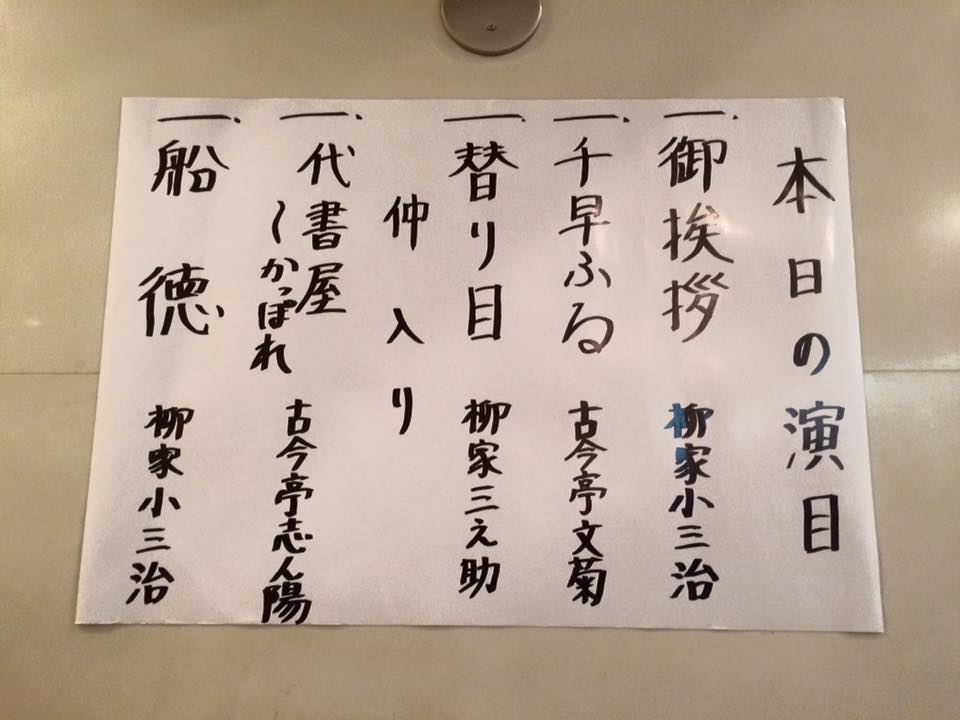 本日の演目
一、御挨拶 柳家小三治
一、千早ふる 古今亭文菊
一、替り目 柳家三之助
仲入り
一、代書屋 古今亭志ん陽
〜かっぽれ
一、船徳 柳家小三治